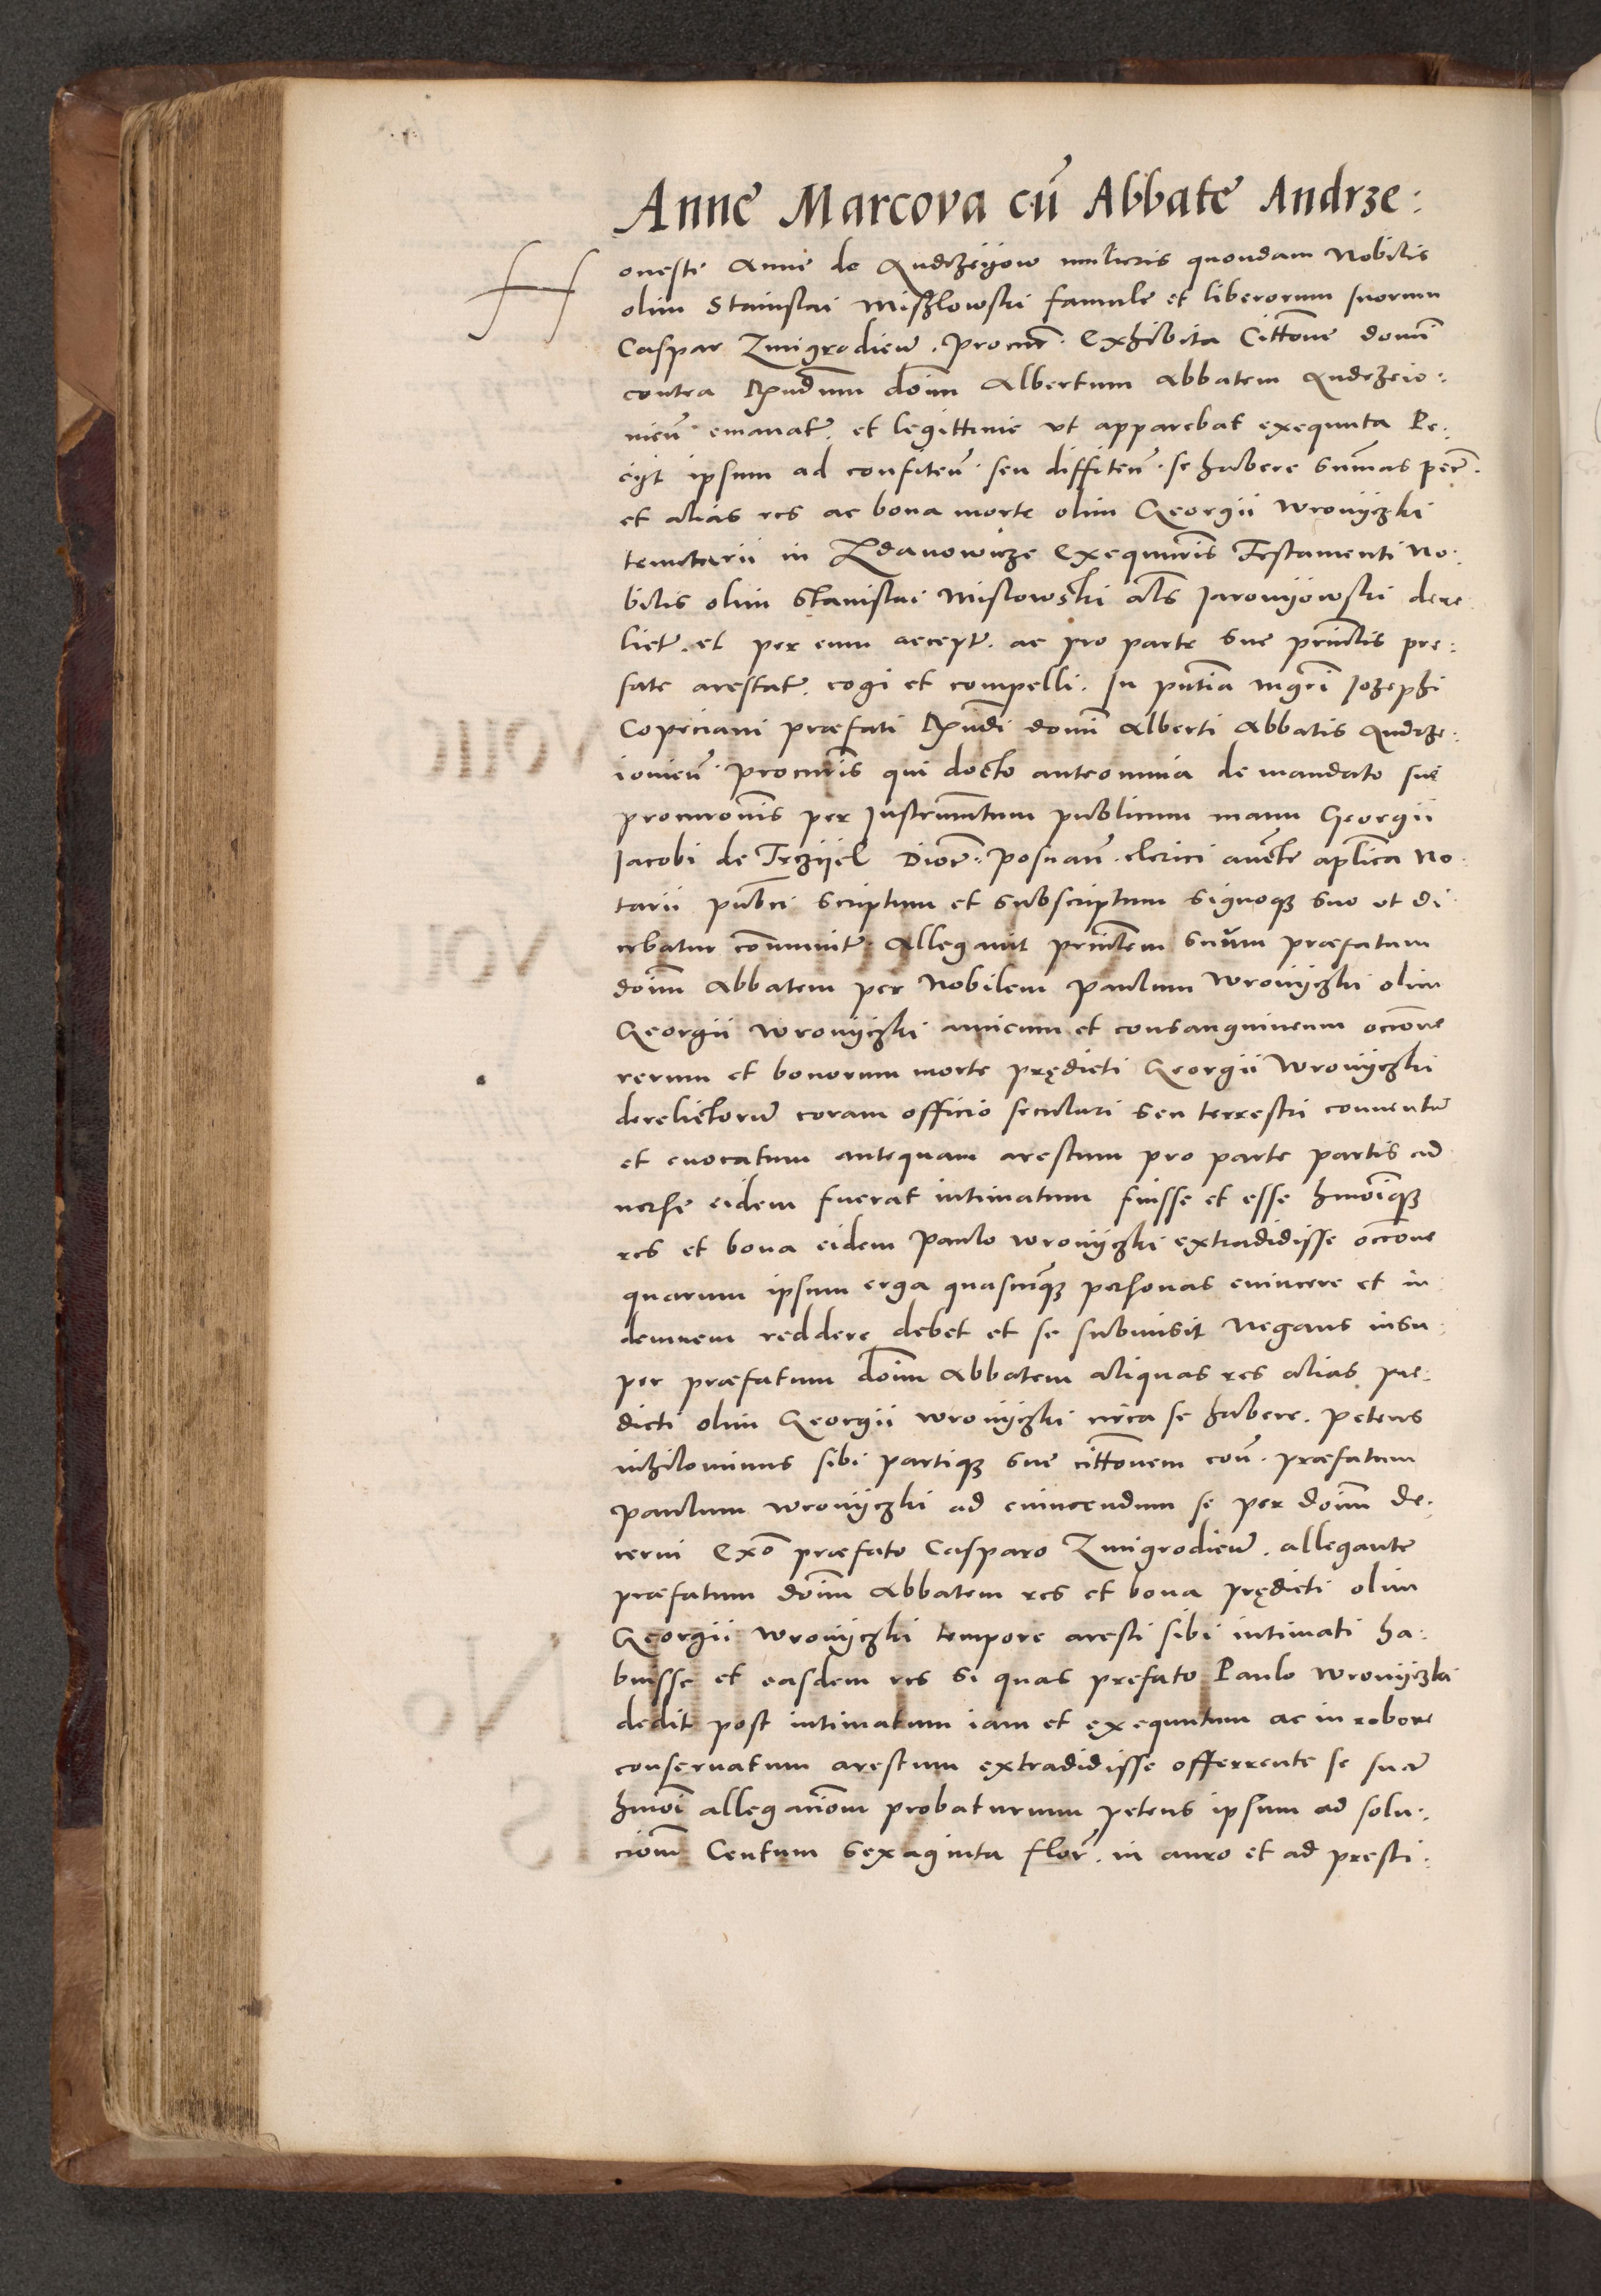 Anne Marcova cū Abbate Andrze:
Honeste Anne de Andrzeyow mulieris quondam Nobilis
olim Stanislai Misslowski famule et liberorum suorum
Caspar Zmigrodień. Procur. Exhibita Cittōne domī
contra Rṇdum dom̄ Albertum Abbatem Andrzeio:
nień emanat̄. et legittime ut apparebat exequuta Pe:
cyt ipsum ad confiteń. seu diffiteń. se habere sūmas pec̄.
et alias res ac bona morte olim Georgii Wronyczki
tenutarii in Zdanowicze Exequuris Testamenti No:
bilis olim Stanislai Mislowski als̄ Jaronyowski dere
lict̄. et per eum accept̄. ac pro parte sue prin̄lis pre:
fate arestat̄. cogi et compelli. In pn̄tia mgrī Jozephi
Copiciani præfati Rṇdi domī Alberti Abbatis Andrze:
ionień. procuris qui docto anteomnia de mandato sue
procurōnis per Instrumn̄tum publicum manu Georgii
Jacobi de Trczyel Dioc̄. posnań. clerici aucte aplica No:
tarii publici scriptum et subscriptum signoq̨ suo ut di
cebatur cōmunit̄. Allegavit prin̄lem suum præfatum
dom̄ Abbatem per Nobilem Paulum Wronyczki olim
Georgii Wronyczki amicum et consanguineum occōne
rerum et bonorum morte prędicti Georgii Wronyczki
derelictorum̄ coram officio seculari seu terrestri conuentum̄
et euocatum antequam arestum pro parte partis ad
uerse eidem fuerat intimatum fuisse et esse hm̄oiq̨
res et bona eidem Paulo Wronyczki extradidisse occōne
quarum ipsum erga quascūq̨ personas euincere et in
demnem reddere debet et se submisit Negans insu:
per præfatum dom̄ Abbatem aliquas res alias pre:
dicti olim Georgii Wronyczki circa se habere. petens
nihilominus sibi partiq̨ sue cittōnem coń. præfatum
Paulum Wronyczki ad euincendum se per dom̄ de:
cerni Exō præfato Casparo Zmigrodień. allegante
præfatum dom̄ Abbatem res et bona prędicti olim
Georgii Wronyczki tempore aresti sibi intimati ha:
buisse et easdem res si quas prefato Paulo Wronyczki
dedit post intimatum iam et exequutum ac in robore
conseruatum arestum extradidisse offerrente se suam̄
hm̄oi allegaciōm probaturum petens ipsum ad solu:
ciōm Centum sexaginta flor̄. in auro et ad presti: